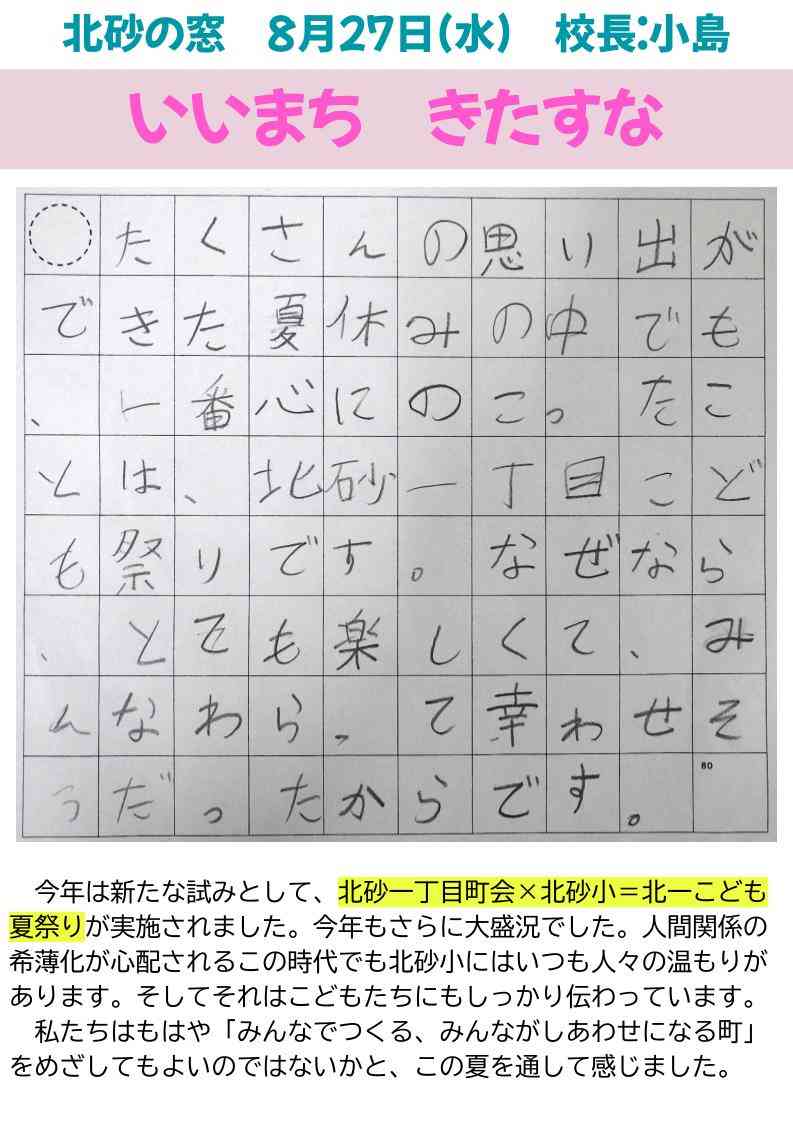 北砂の窓　8月27日(水)　校長:小島
いいまち　きたすな
たくさんの思い出が
できた夏休みの中でも
、一番心にのこったこ
とは、北砂一丁目こど
も祭りです。なぜなら
、とても楽しくて、み
んなわらって幸わせそ
うだったからです。
80
今年は新たな試みとして、北砂一丁目町会×北砂小＝北一こども
夏祭りが実施されました。今年もさらに大盛況でした。人間関係の
希薄化が心配されるこの時代でも北砂小にはいつも人々の温もりが
あります。そしてそれはこどもたちにもしっかり伝わっています。
私たちはもはや「みんなでつくる、みんながしあわせになる町」
をめざしてもよいのではないかと、この夏を通して感じました。